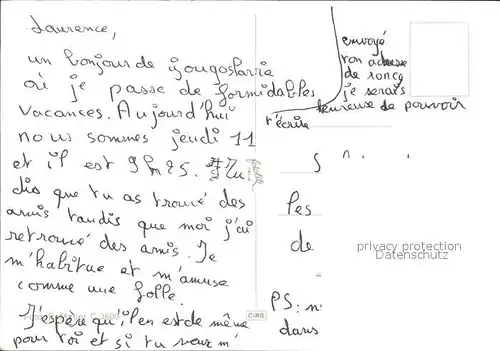 Laurence,
un bonjour de yougoslavie
où je passe de formidables
vacances. Aujourd'hui
nous sommes jeudi 11
et il est 9h25. Tu
dis que tu as trouvé des
amis tandis que moi j'ai
retrouvé des amis. Je
m'habitue et m'amuse
comme une folle.
J'espère qu'il en est de même
pour toi et si tu veux m'
envoyé
ton adresse
de
je serais
heureuse de pouvoir
t'écrire
les
de
PS: n'
dans
privacy protection
Datenschutz
CIRO